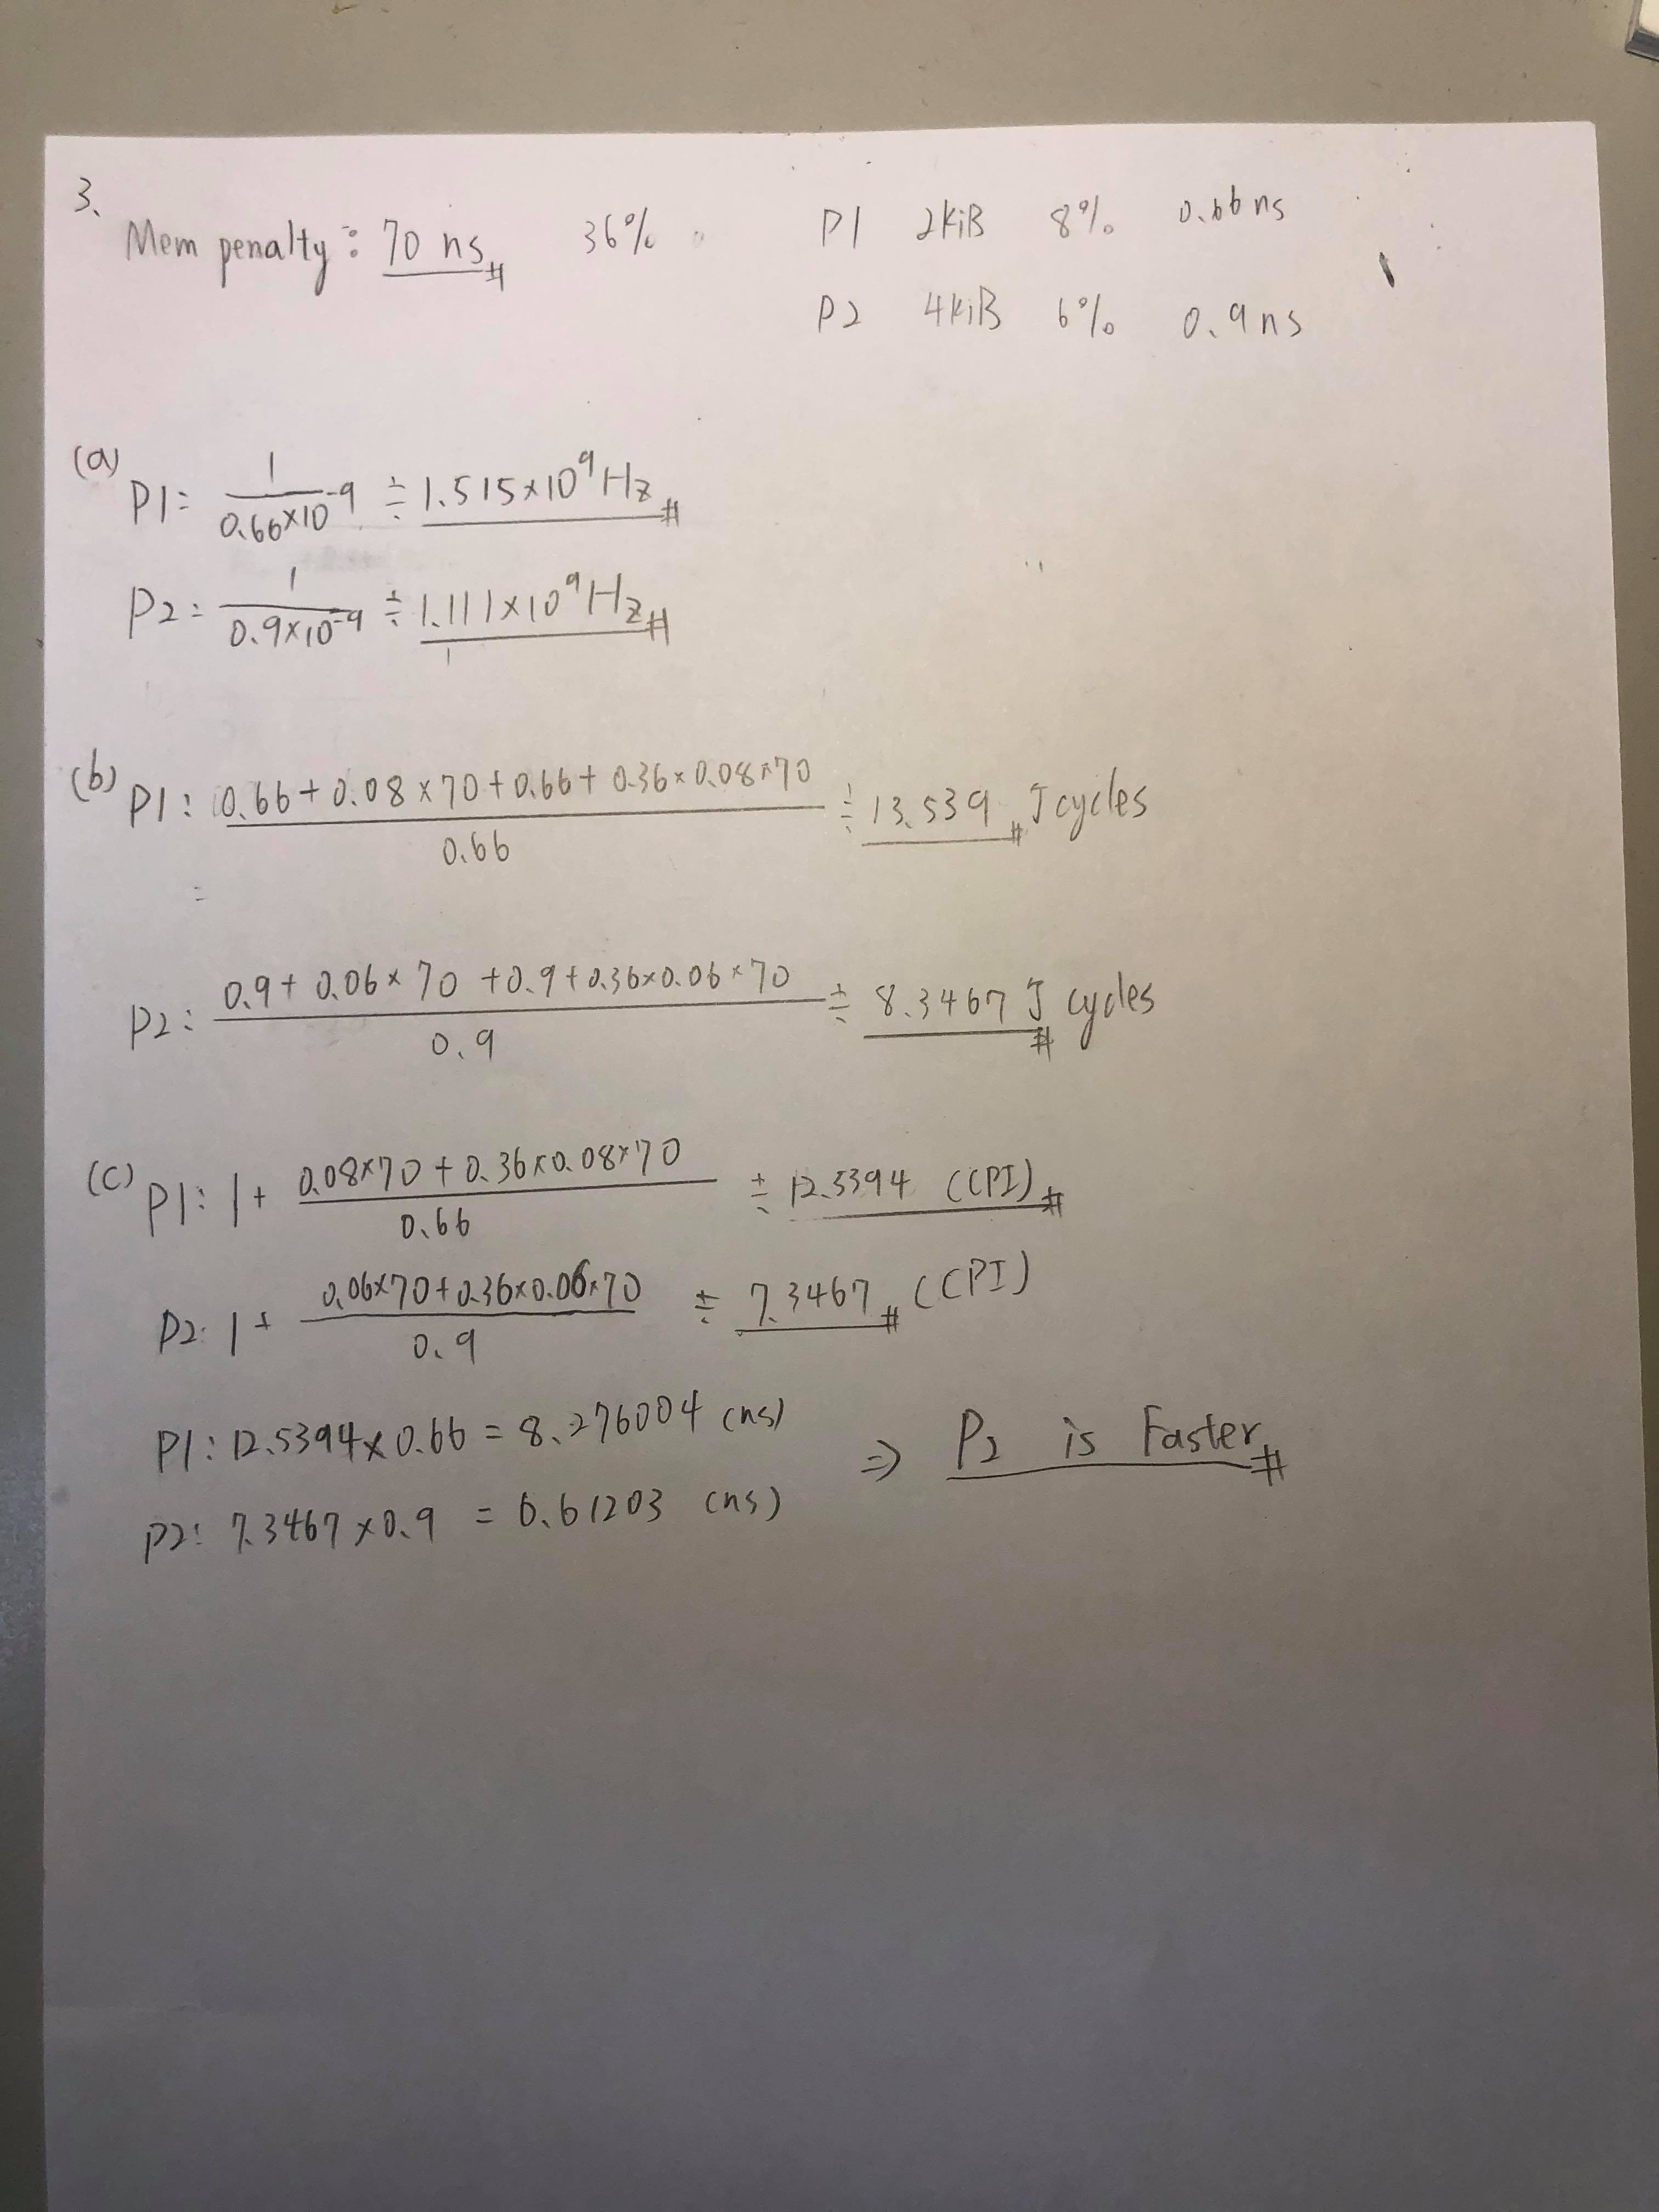 3.
Mem penalty : 70 ns # 36% P1 2KiB 8% 0.66 ns
P2 4KiB 6% 0.9 ns
(a)
P1 = 1 / 0.66×10^-9 ≒ 1.515×10^9 Hz #
P2 = 1 / 0.9×10^-9 ≒ 1.111×10^9 Hz #
(b) P1 : 0.66 + 0.08 × 70 + 0.66 + 0.36 × 0.08 × 70 / 0.66 ≒ 13.539 # J cycles
=
P2 : 0.9 + 0.06 × 70 + 0.9 + 0.36 × 0.06 × 70 / 0.9 ≒ 8.3467 J # cycles
(c) P1 : 1 + 0.08×70 + 0.36×0.08×70 / 0.66 ≒ 12.5394 (CPI) #
P2 : 1 + 0.06×70 + 0.36×0.06×70 / 0.9 ≒ 7.3467 # (CPI)
P1 : 12.5394 × 0.66 = 8.276004 (ns)
⇒ P2 is Faster #
P2 : 7.3467 × 0.9 = 6.61203 (ns)